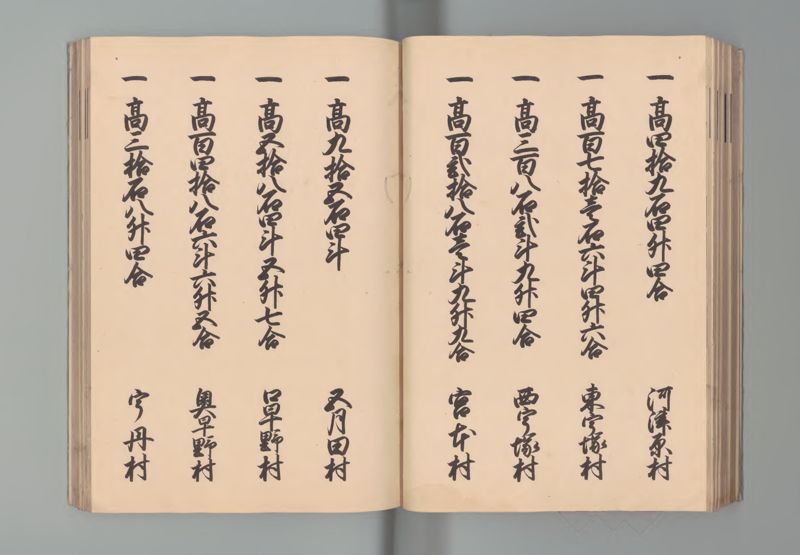 一 高四拾九石四升四合 河津原村
一 高百七拾壱石六斗四升六合 東宇塚村
一 高二百八石弐斗九升四合 西宇塚村
一 高百弐拾八石壱斗九升九合 宮本村
一 高九拾五石四斗 五月田村
一 高五拾八石四斗五升七合 口早野村
一 高百四拾八石六斗六升五合 奥早野村
一 高二拾石八升四合 宇丹村